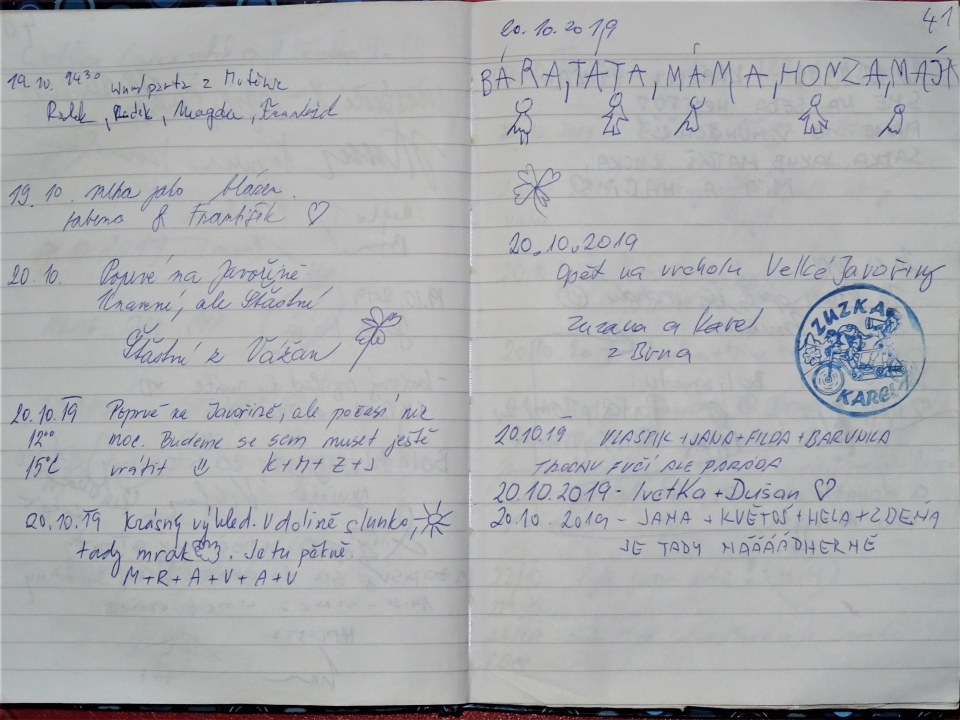 19.10. 14³⁰ z
Radek, Radik, Magda, František
19.10. mlha jako blázen.
& František ♡
20.10. Poprvé na Javořině
Unavení, ale šťastní
Šťastní z Vážan
20.10.19 Poprvé na Javořině, ale počasí nic
12⁰⁰ moc. Budeme se sem muset ještě
15°C vrátit K+M+Z+J
20.10.19 Krásný výhled. V dolině slunko,
tady mrak. Je tu pěkně.
M+R+A+V+A+V
41
20.10.2019
BÁRA, TÁTA, MÁMA, HONZA, MÁJA
20.10.2019
Opět na vrcholu Velké Javořiny
Zuzana a Karel
z Brna
ZUZKA
KAREL
20.10.19 VLASTIK+JANA+FILDA+BARUNKA
FUČÍ ALE PARÁDA
20.10.2019 - Ivetka + Dušan ♡
20.10.2019 - JANA + KVĚTOŠ + HELA + ZDENA
JE TADY NÁÁÁÁDHERNĚ